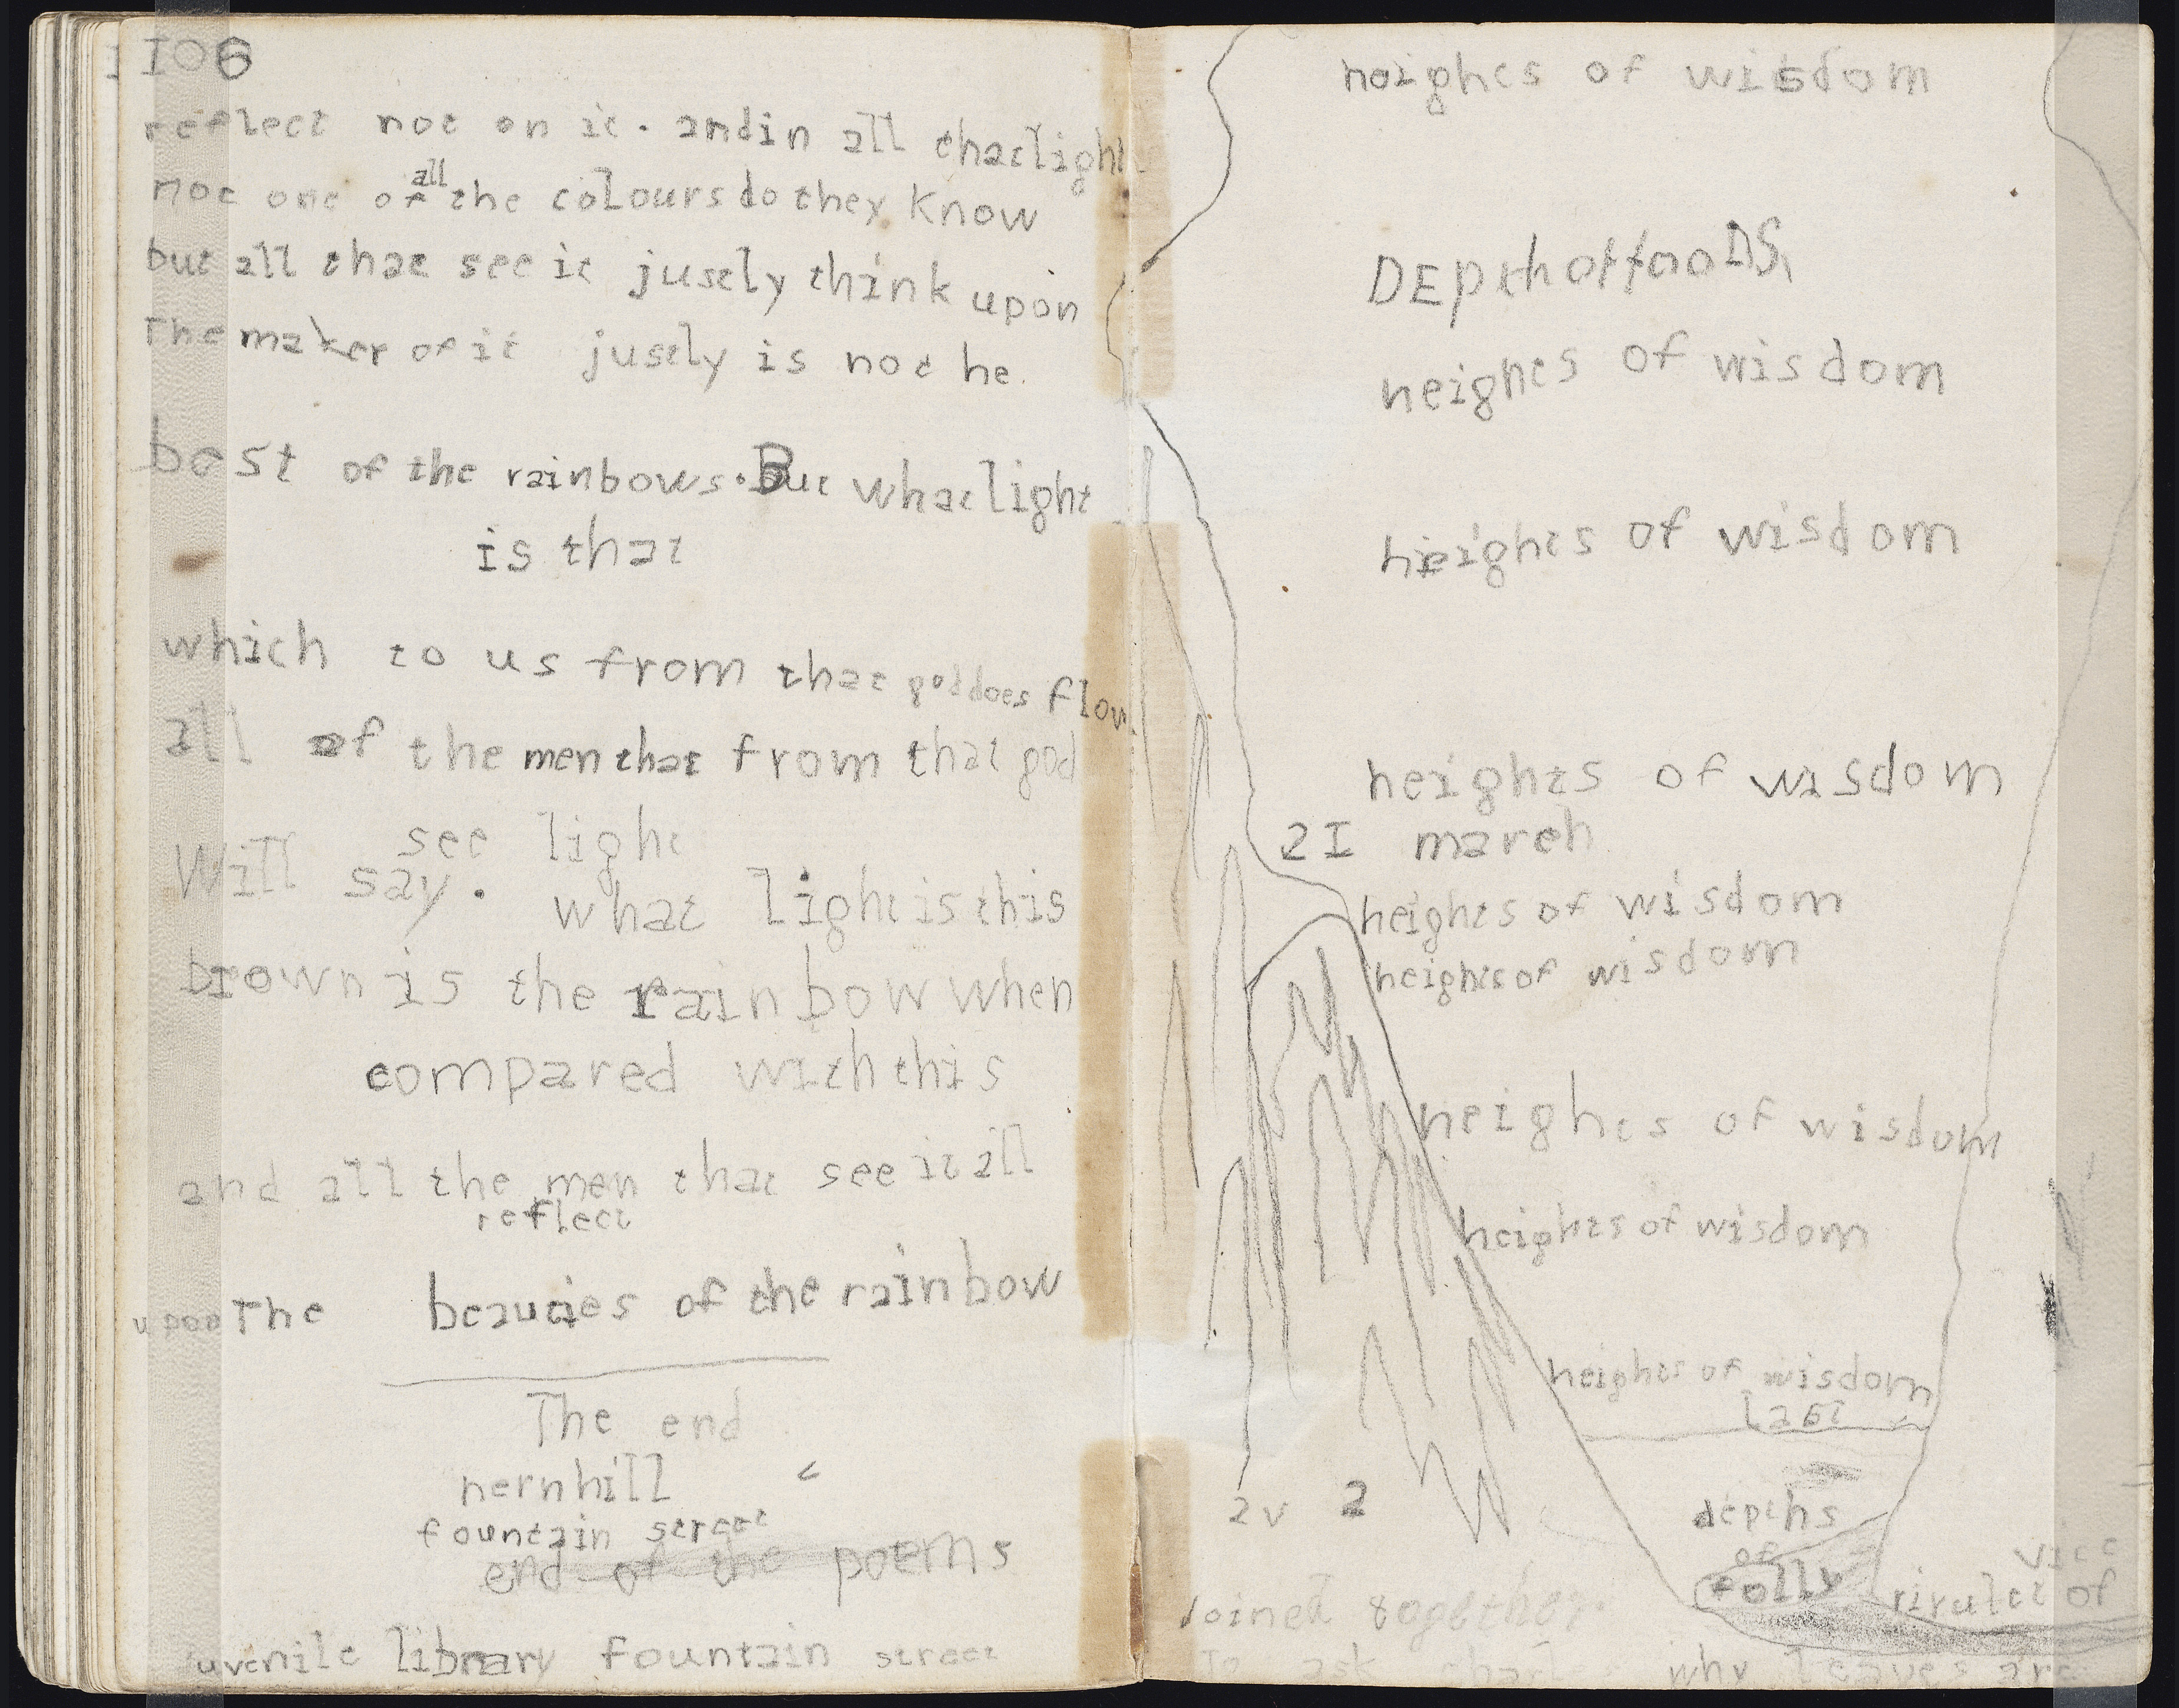 106
reflect not on it. andin all thatlight
all
not one of the colours do they know
but all that see it justly think upon
The maker of it justly is not he.
best of the rainbows. But whatlight
is that
which to us from that god does flow
all of the men that from that god
see light
Will say. what light is this
brown is the rainbow when
compared with this
and all the men that see it all
reflect
upon The beauties of the rainbow
The end
hernhill
fountain street
end of the poems
uvenile library fountain street
heights of wisdom
DEpth of
heights of wisdom
heights of wisdom
heights of wisdom
21 march
heights of wisdom
heights of wisdom
heights of wisdom
heights of wisdom
heights of wisdom
Last
depths
of
folly
vice
rivulet of
2v 2
Joined together
To ask why leaves are